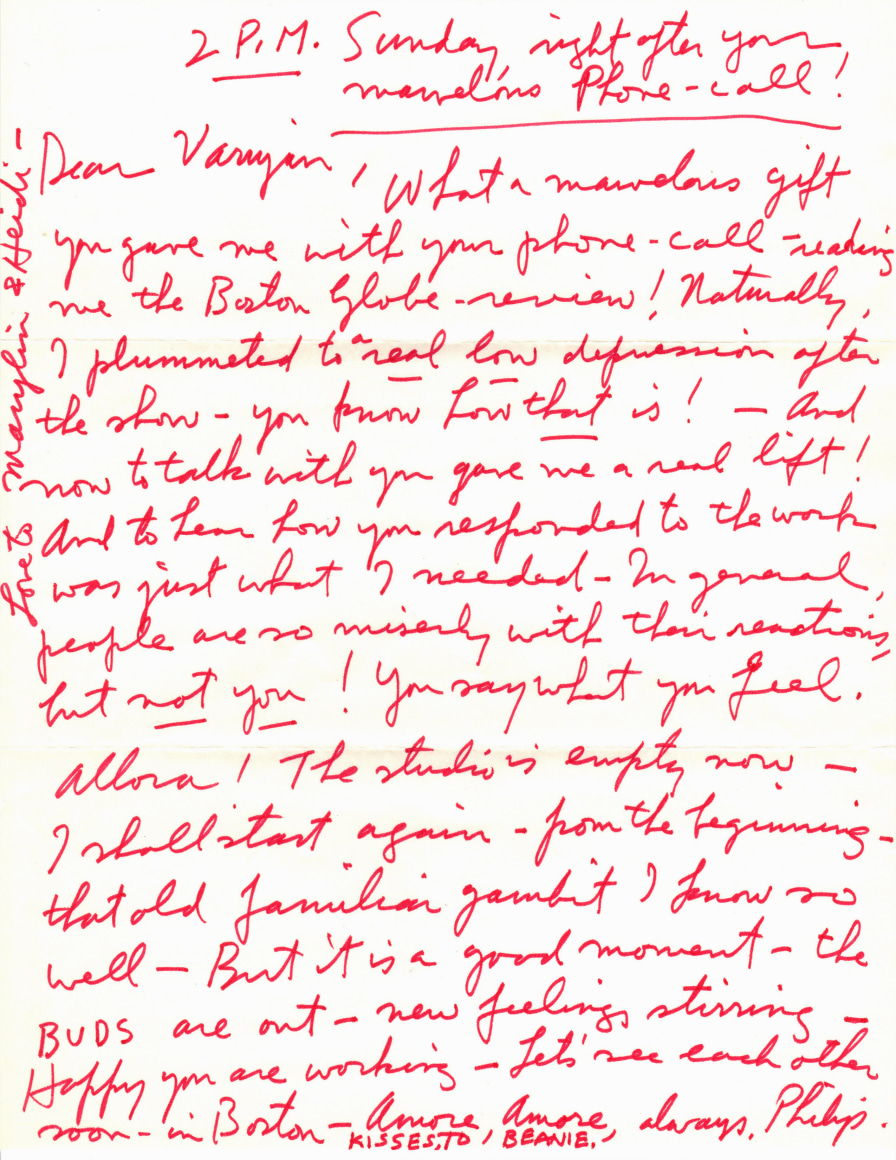 2 P.M. Sunday, right after your
marvelous Phone-call!
Dear Varujan, What a marvelous gift
you gave me with your phone-call - reading
me the Boston Globe - review! Naturally,
I plummeted to a real low depression after
the show - you know how that is! - And
now to talk with you gave me a real lift!
And to hear how you responded to the work
was just what I needed - In general,
people are so miserly with their reactions,
but not you! You say what you feel.
Allora! The studio is empty now -
I shall start again - from the beginning -
that old familiar gambit I know so
well - But it is a good moment - the
BUDS are out - new feelings stirring -
Happy you are working - Let's see each other
soon - in Boston - Amore, Amore, always, Philip.
KISSES, TO, BEANIE,
Love to Marylin & Heidi -